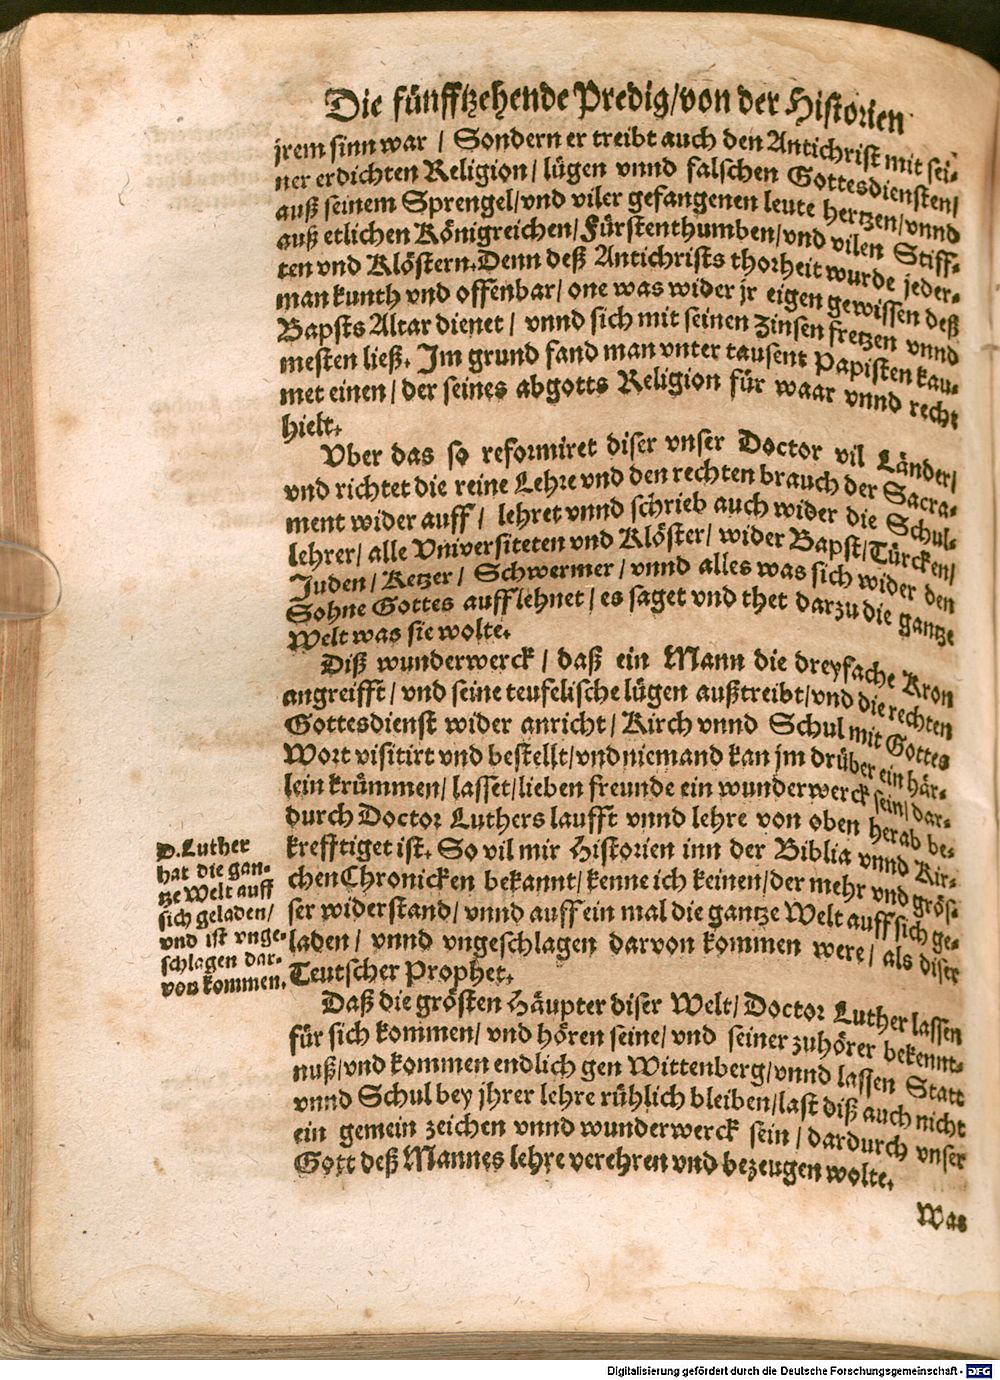 Die fünfftzehende Predig/von der Historien
jrem sinn war / Sondern er treibt auch den Antichrist mit sei-
ner erdichten Religion/ lügen vnnd falschen Gottesdiensten/
auß seinem Sprengel/vnd viler gefangenen leute hertzen/vnnd
auß etlichen Königreichen/ Fürstenthumben/vnd vilen Stiff-
ten vnd Klöstern. Denn deß Antichrists thorheit wurde jeder-
man kunth vnd offenbar/ one was wider jr eigen gewissen deß
Bapsts Altar dienet / vnnd sich mit seinen Zinsen fretzen vnnd
mesten ließ. Im grund fand man vnter tausent Papisten kau-
met einen / der seines abgotts Religion für waar vnnd recht
hielt.
Vber das so reformiret diser vnser Doctor vil Länder/
vnd richtet die reine Lehre vnd den rechten brauch der Sacra-
ment wider auff / lehret vnnd schrieb auch wider die Schul-
lehrer/ alle Vniversiteten vnd Klöster/ wider Bapst/Türcken/
Juden / Ketzer / Schwermer / vnnd alles was sich wider den
Sohne Gottes aufflehnet / es saget vnd thet darzu die gantze
Welt was sie wolte.
Diß wunderwerck / daß ein Mann die dreyfache Kron
angreifft/ vnd seine teufelische lügen außtreibt/vnd die rechten
Gottesdienst wider anricht/ Kirch vnnd Schul mit Gottes
Wort visitirt vnd bestellt/vnd niemand kan jm drüber ein här-
lein krümmen/ lasset/lieben freunde ein wunderwerck sein/ dar-
durch Doctor Luthers laufft vnnd lehre von oben herab be-
krefftiget ist. So vil mir Historien inn der Biblia vnnd Kir-
chen Chronicken bekannt/ kenne ich keinen/der mehr vnd grös-
ser widerstand/ vnnd auff ein mal die gantze Welt auff sich ge-
laden / vnnd vngeschlagen darvon kommen were / als diser
Teutscher Prophet.
D. Luther
hat die gan-
tze Welt auff
sich geladen/
vnd ist vnge-
schlagen dar-
von kommen.
Daß die grösten Häupter diser Welt/ Doctor Luther lassen
für sich kommen/ vnd hören seine/ vnd seiner zuhörer bekennt-
nuß/vnd kommen endlich gen Wittenberg/vnnd lassen Statt
vnnd Schul bey jhrer lehre rühlich bleiben/last diß auch nicht
ein gemein zeichen vnnd wunderwerck sein / dardurch vnser
Gott deß Mannes lehre verehren vnd bezeugen wolte.
Was
Digitalisierung gefördert durch die Deutsche Forschungsgemeinschaft - DFG